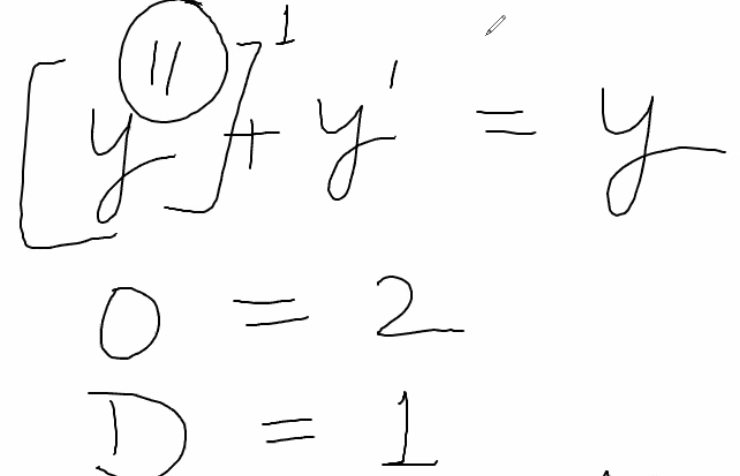 [y'']^1 + y' = y
0 = 2
D = 1